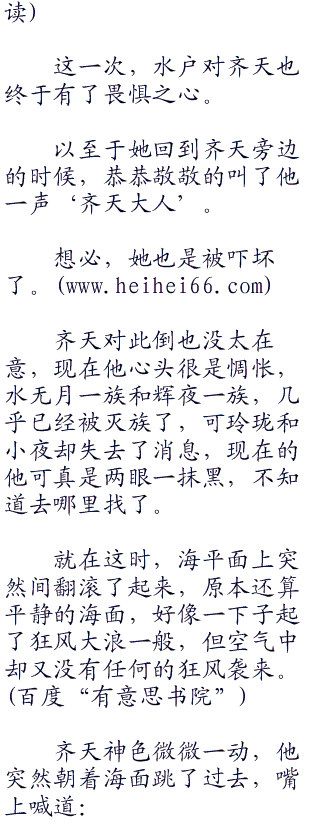 读)
这一次，水户对齐天也
终于有了畏惧之心。
以至于她回到齐天旁边
的时候，恭恭敬敬的叫了他
一声‘齐天大人’。
想必，她也是被吓坏
了。(www.heihei66.com)
齐天对此倒也没太在
意，现在他心头很是惆怅，
水无月一族和辉夜一族，几
乎已经被灭族了，可玲珑和
小夜却失去了消息，现在的
他可真是两眼一抹黑，不知
道去哪里找了。
就在这时，海平面上突
然间翻滚了起来，原本还算
平静的海面，好像一下子起
了狂风大浪一般，但空气中
却又没有任何的狂风袭来。
(百度“有意思书院”)
齐天神色微微一动，他
突然朝着海面跳了过去，嘴
上喊道：